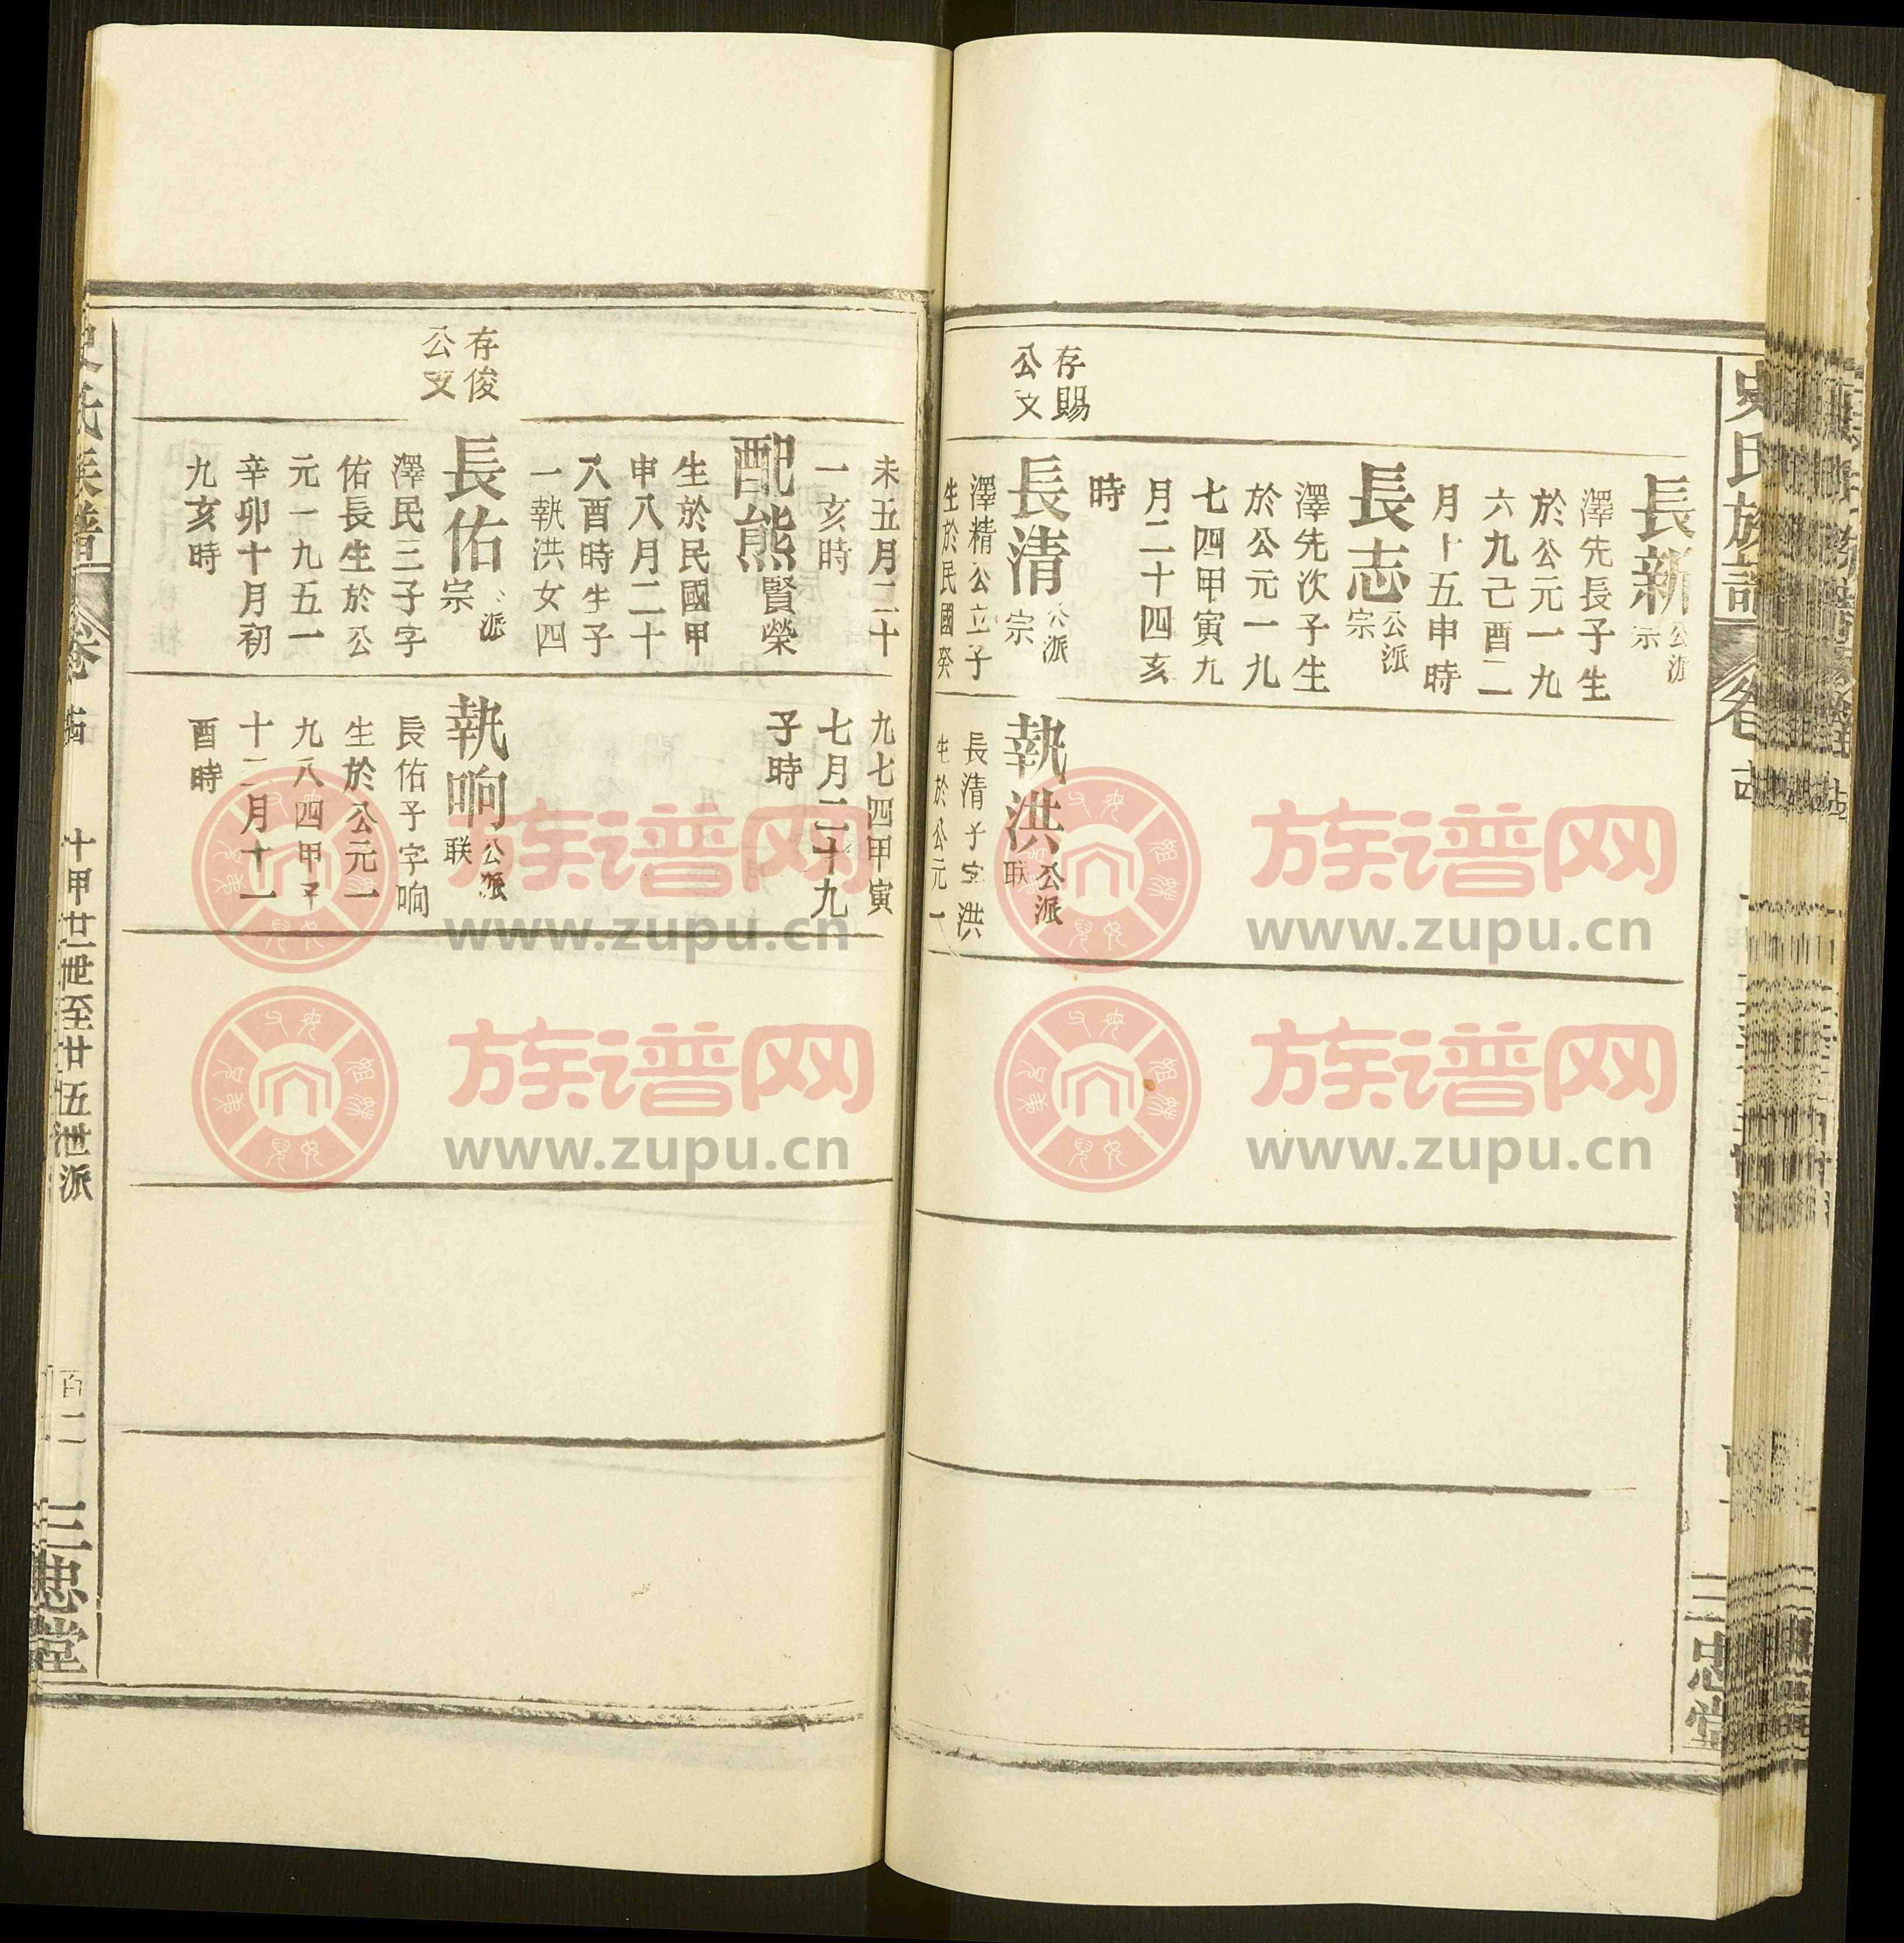 史氏族譜
三忠堂
長新
公派
宗
澤先長子生
於公元一九
六九己酉二
月十五申時
長志
公派
宗
澤先次子生
於公元一九
七四甲寅九
月二十四亥
時
存賜
公文
長清
公派
宗
澤精公立子
生於民國癸
執洪
公派
联
長清子字洪
生於公元一
未五月二十
一亥時
配熊
賢榮
生於民國甲
申八月二十
八酉時生子
一執洪女四
九七四甲寅
七月二十九
子時
存俊
公文
長佑
公派
宗
澤民三子字
佑長生於公
元一九五一
辛卯十月初
九亥時
執响
公派
联
長佑子字响
生於公元一
九八四甲子
十二月十一
酉時
史氏族譜
卷
十甲廿一世至廿五世派
百二
三忠堂
族谱网
www.zupu.cn
族谱网
www.zupu.cn
族谱网
www.zupu.cn
族谱网
www.zupu.cn